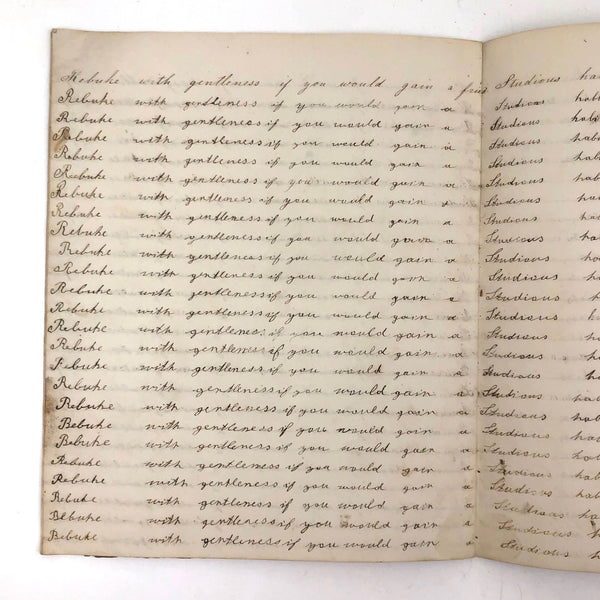 Rebuke with gentleness if you would gain a frien
Rebuke with gentleness if you would gain a
Rebuke with gentleness if you would gain a
Rebuke with gentleness if you would gain a
Rebuke with gentleness if you would gain a
Rebuke with gentleness if you would gain a
Rebuke with gentleness if you would gain a
Rebuke with gentleness if you would gain a
Rebuke with gentleness if you would gain a
Rebuke with gentleness if you would gain a
Rebuke with gentleness if you would gain a
Rebuke with gentleness if you would gain a
Rebuke with gentleness if you would gain a
Rebuke with gentleness if you would gain a
Rebuke with gentleness if you would gain a
Rebuke with gentleness if you would gain a
Rebuke with gentleness if you would gain a
Rebuke with gentleness if you would gain a
Bebuke with gentleness if you would gain a
Bebuke with gentleness if you would gain a
Rebuke with gentleness if you would gain a
Rebuke with gentleness if you would gain a
Rebuke with gentleness if you would gain a
Bebuke with gentleness if you would gain a
Bebuke with gentleness if you would gain a
Studious hab
Studious hab
Studious hab
Studious hab
Studious hab
Studious hab
Studious hab
Studious hab
Studious hab
Studious ha
Studious ha
Studious ha
Studious h
Studious ha
Studious ha
Studious ha
Studious ha
Studious hab
Studious hab
Studious hab
Studious hab
Studious hab
Studious hab
Studious hab
Studious hab